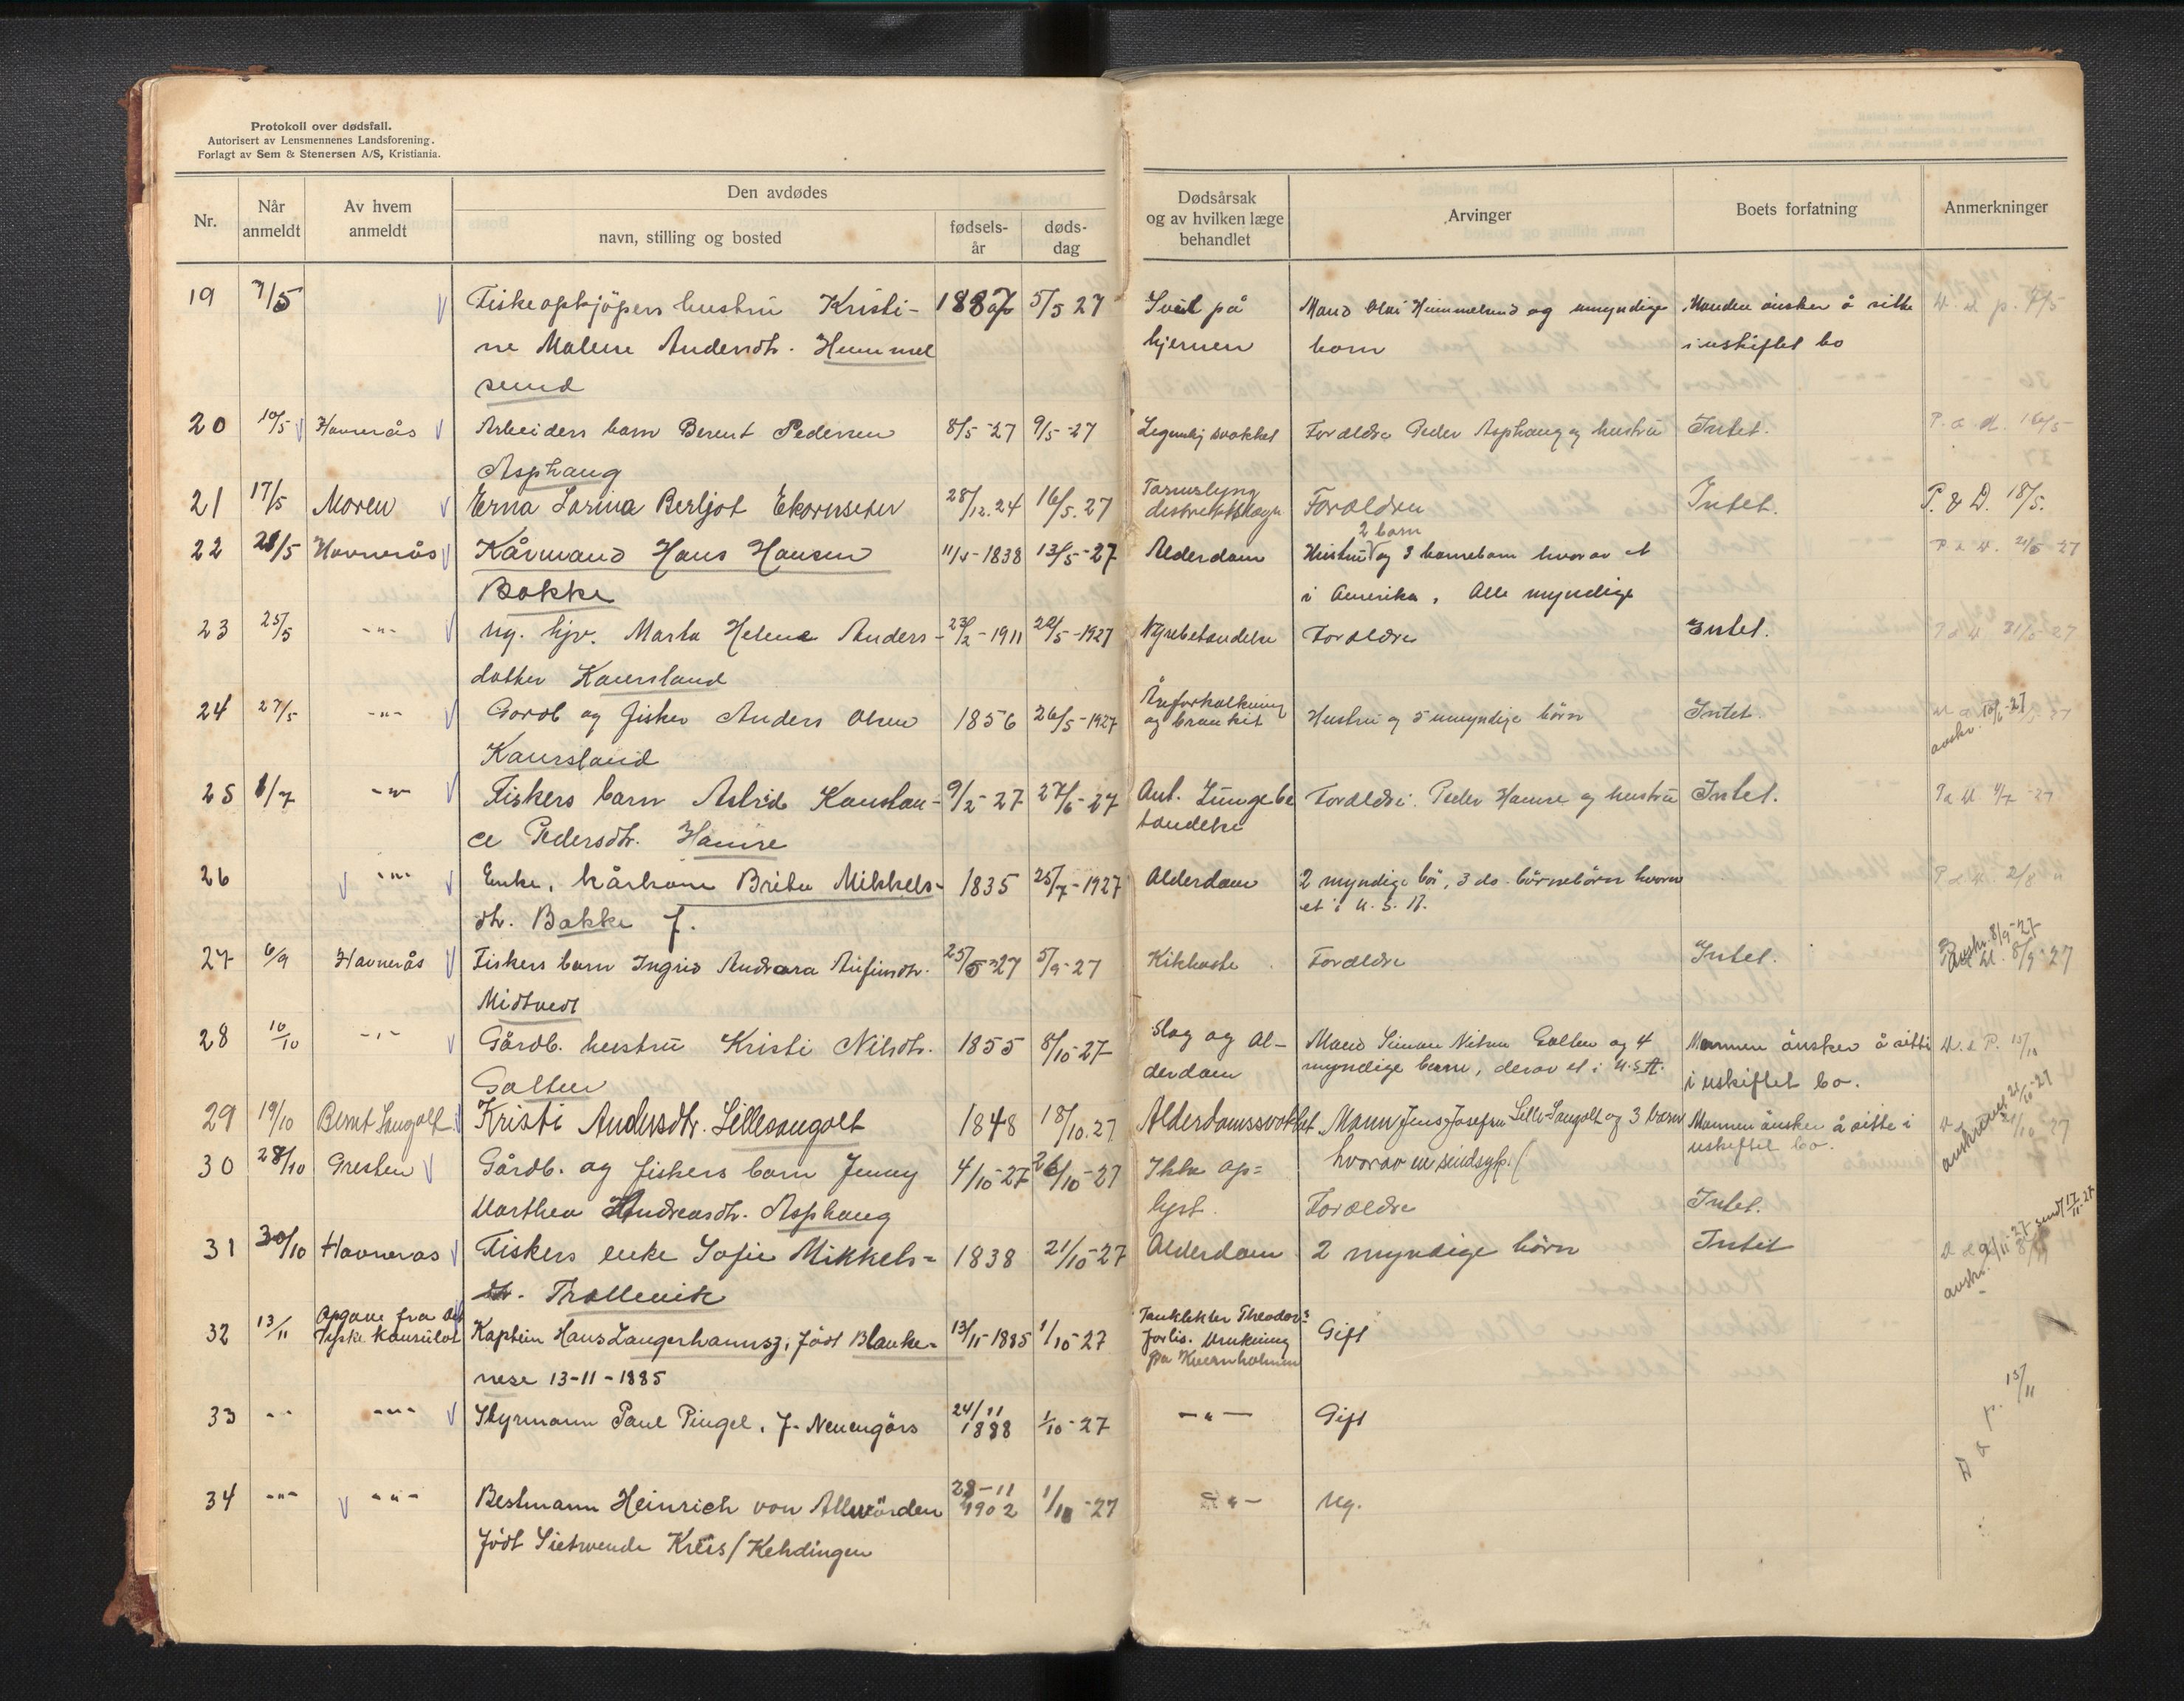 Protokoll over dødsfall.
Autorisert av Lensmennenes Landsforening.
Forlagt av Sem & Stenersen A/S, Kristiania.
Nr.
Når anmeldt
Av hvem anmeldt
Den avdødes
navn, stilling og bosted
fødsels-år
døds-dag
Dødsårsak og av hvilken læge behandlet
Arvinger
Boets forfatning
Anmerkninger
19 7/5 Fiskeopkjøpers hustru Kristi- 1887 5/5 27 Svul på Mand Olai Hummelsund og umyndige Manden ønsker å sitte
ne Malene Andersdtr. Hummel hjernen barn i uskiftet bo
sund
20 10/5 Havnerås Arbeiders barn Berent Pedersen 8/5-27 9/5-27 Legemlig svakhet Forældre Peder Asphaug og hustru Intet. P. & D. 16/5
Asphaug
21 17/5 Moren Erna Larina Berljot Ekornseter 28/12.24 16/5.27 Tarmslyng distriktslægen Forældren Intet. P. & D. 18/5.
22 21/5 Havnerås Kårmand Hans Hansen 11/5-1838 13/5-27 Alderdom Hustru 2 barn og 3 barnebarn hvorav et P & D. 21/5-27
Bakke i Amerika. Alle myndige
23 25/5 -"- Ug. hjv. Marta Helene Anders- 23/2-1911 22/5-1927 Nyrebetendelse Forældre Intet. 31/5-27
datter Kausland
24 27/5 -"- Gardb og fisker Anders Olsen 1856 26/5-1927 Åreforkalkning og bronkit Hustru og 5 umyndige børn Intet. avskr. 10/6-27
Kausland
25 1/7 -"- Fiskers barn Astrid Konstan- 9/2-27 27/6-27 Ant. Lungebe Forældre: Peder Hamre og hustru Intet. P & D 4/7-27
ce Pedersdtr. Hamre tendelse
26 -"- Enke, kårkone Brita Mikkels- 1835 25/7-1927 Alderdom 2 myndige bø, 3 do. børnebørn hvorav P & D. 2/8
dtr. Bakke f. et i U.S.A.
27 6/9 Havnerås Fiskers barn Ingrid Andrara Arfinsdtr. 25/5-27 5/9-27 Kikhoste Forældre Intet. avskr. 8/9-27 8/9-27
Midtvedt
28 10/10 -"- Gårdb. hustru Kristi Nilsdtr. 1855 8/10-27 Slag og al- Mand Simon Nilsen Golten og 4 Mannen ønsker å sitte D. & P. 15/10
Golten derdom myndige barn, derav et i U.S.A. i uskiftet bo.
29 19/10 Bernt Sangolt Kristi Andersdtr. Lillesangolt 1848 18/10.27 Alderdomssvakhet Mann Jens Josefsen Lille-Sangolt og 3 barn Mannen ønsker å sitte i avskrevet 21/10-27
hvorav en sindsyk. uskiftet bo.
30 28/10 Presten Gårdb. og fiskers barn Jenny 4/10-27 26/10-27 Ikke op-
Marthea Andreasdtr. Asphaug lyst. Forældre Intet.
31 30/10 Havnerås Fiskers enke Sofie Mikkels- 1838 21/10-27 Alderdom 2 myndige børn Intet avskr. 9/11-27 sendt 17/11-27
dtr. Trællevik
32 13/11 Opgave fra det Tyske konsulat Kaptein Hans Langerhannsz, født Blanke- 13/11-1885 1/10-27 Tanklekter Theodor's forlis. Drukning på Kvernholmen Gift
nese 13-11-1885
33 -"- -"- Styrmann Paul Pingel. f. Neuengörs 24/11 1888 1/10-27 -"- Gift D & P. 15/11
34 -"- -"- Bestmann Heinrich von Allwörden 28-11 1902 1/10-27 -"- Ug.
født Sietwende Kreis/Kehdingen